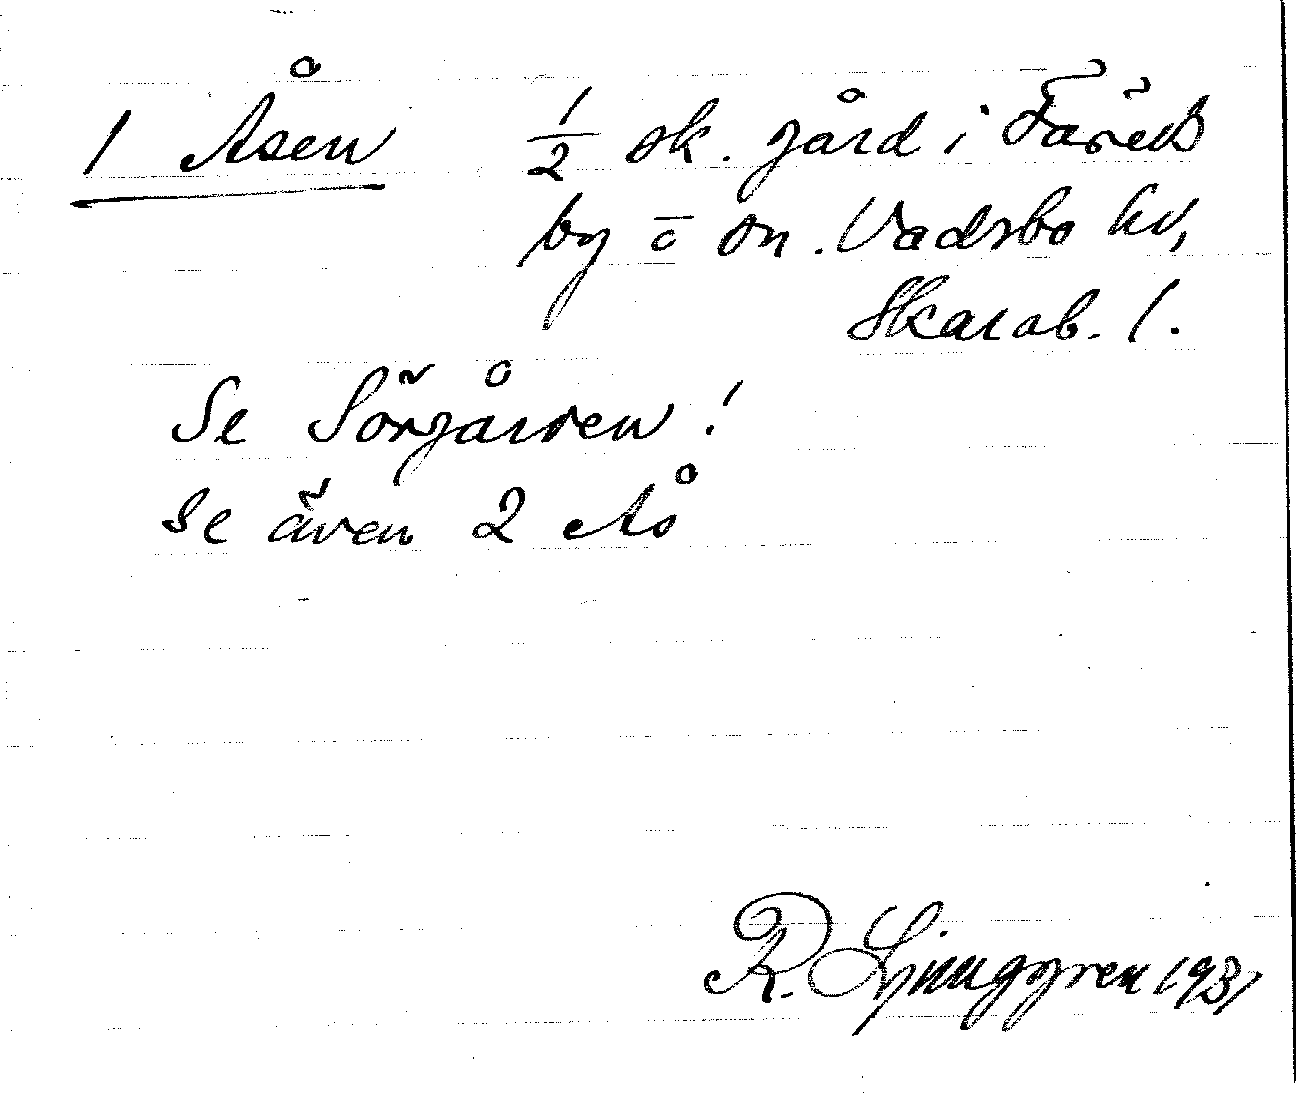 1 Åsen ½ sk. gård i Färeds
by o sn. Vadsbo hd,
Skarab. l.
Se Sörgården!
Se även 2 Ås
R. Ljunggren 1931